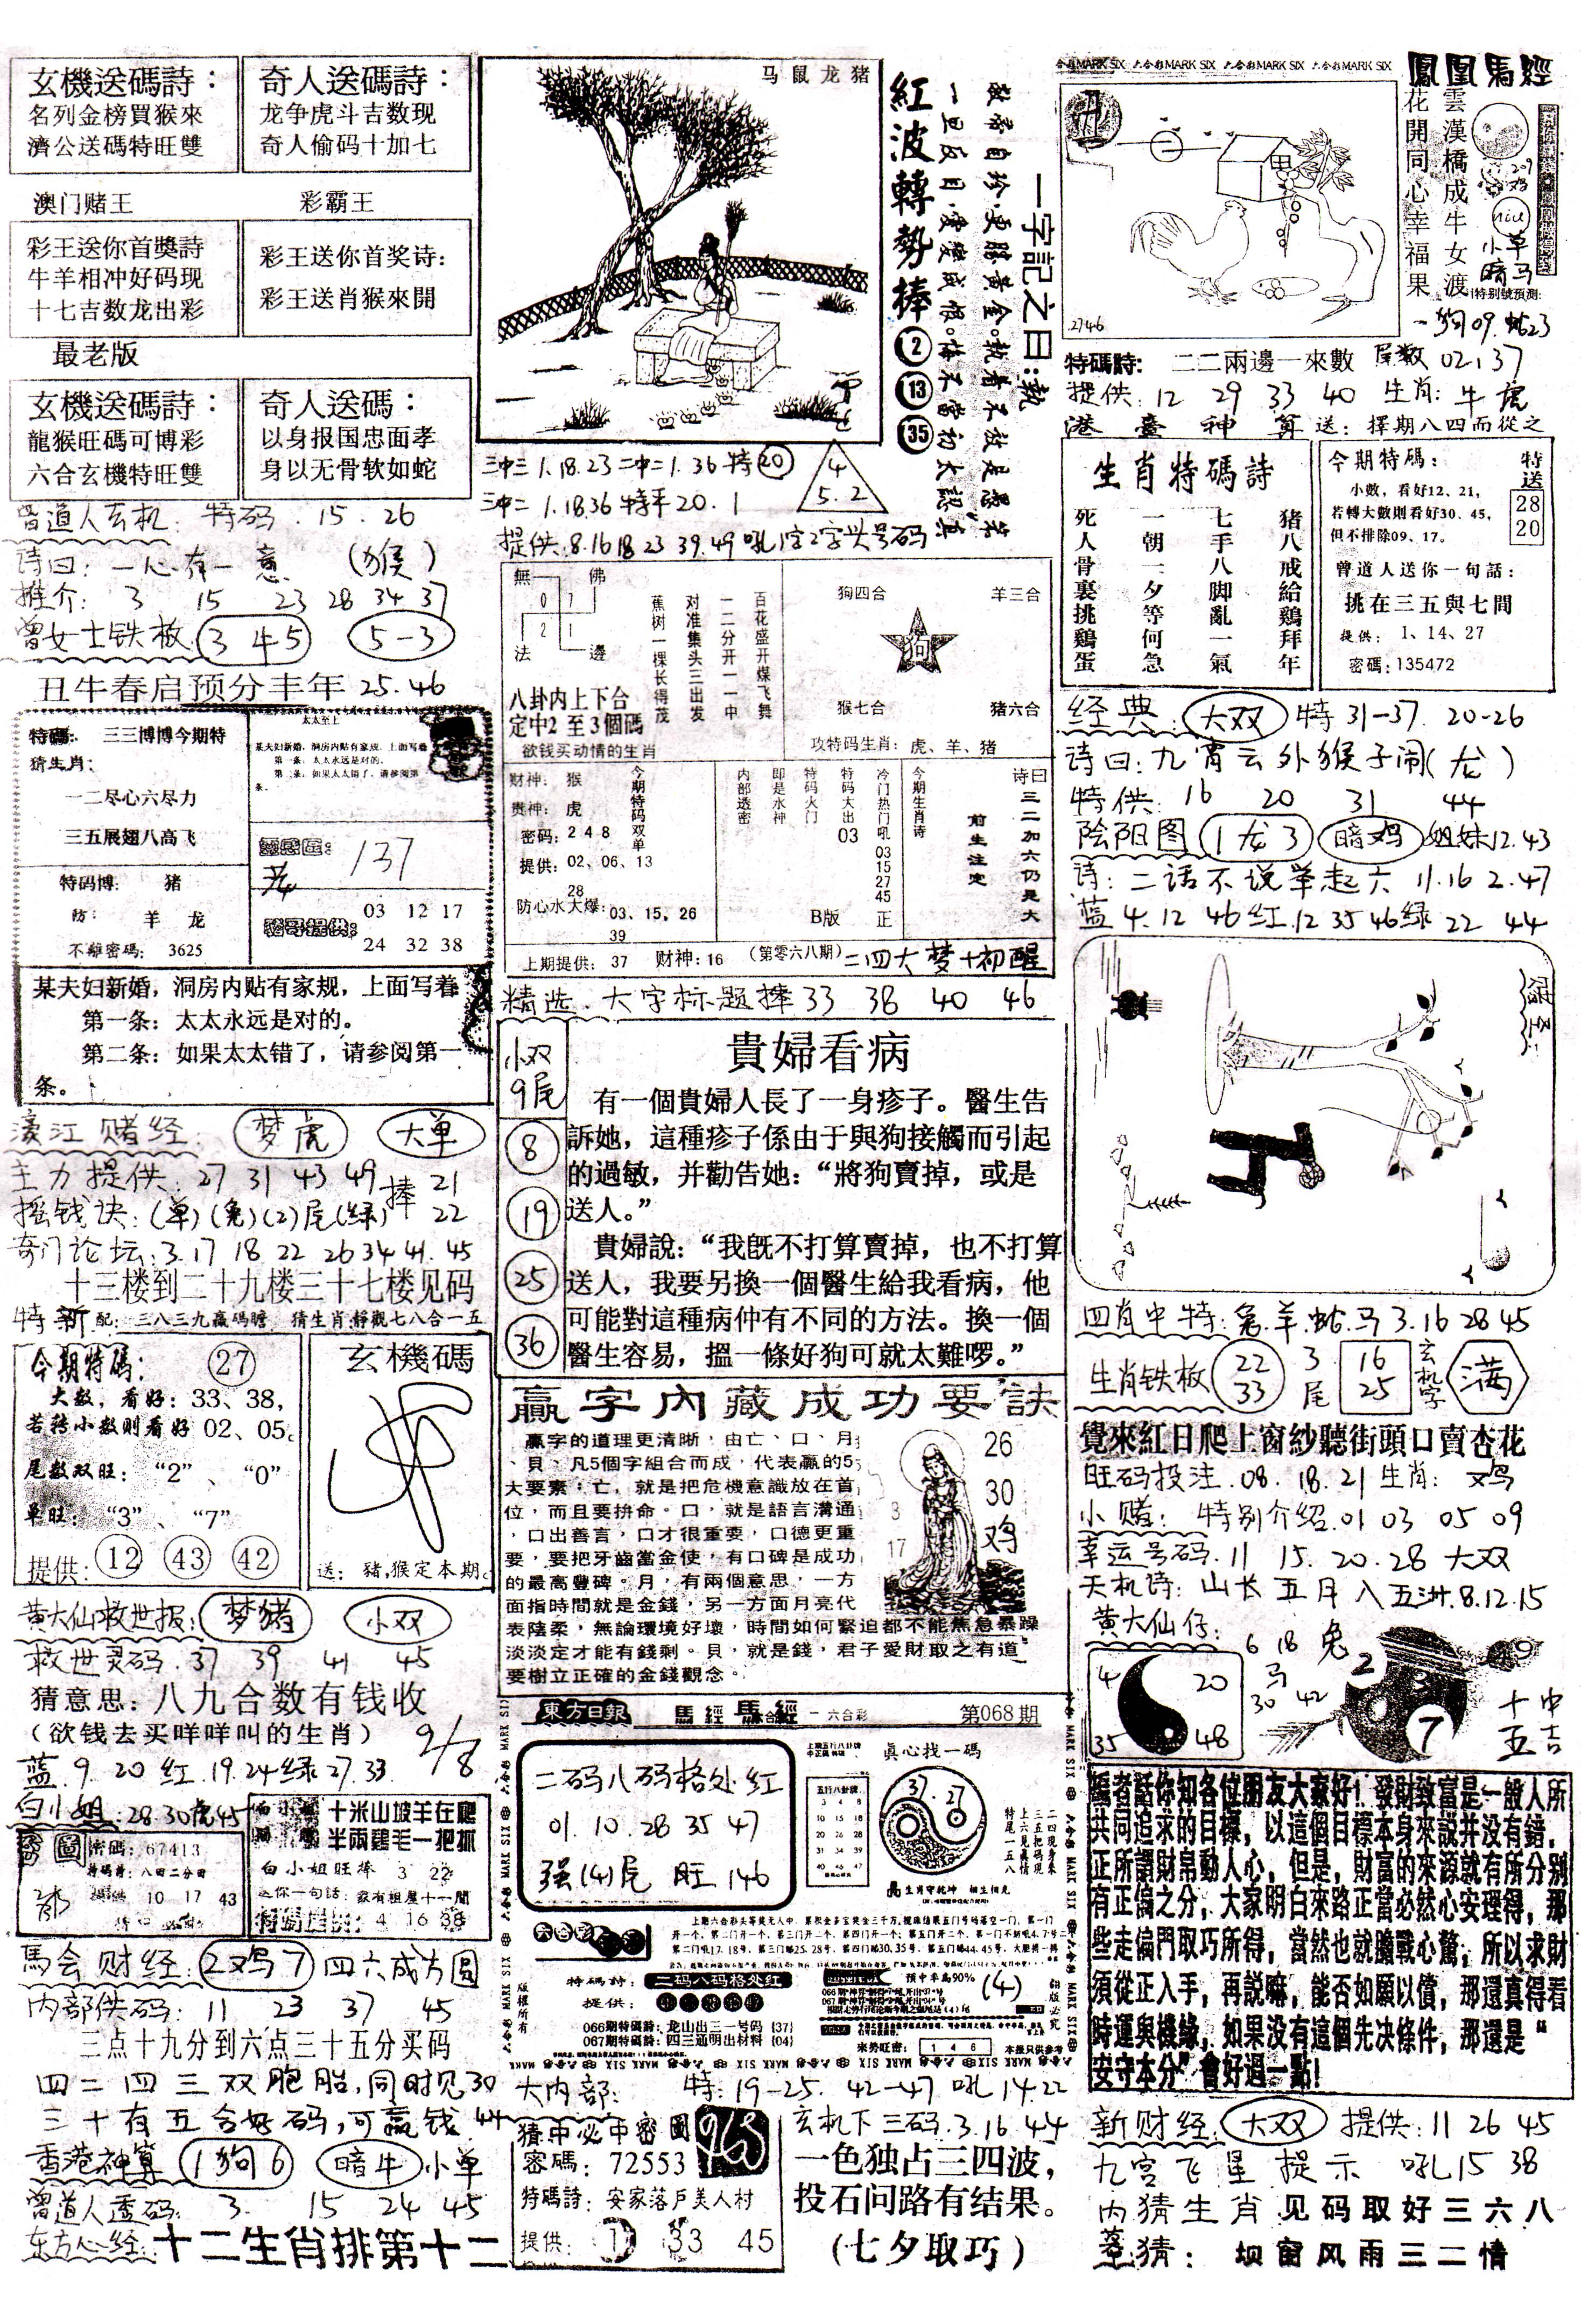 玄機送碼詩：
名列金榜買猴來
濟公送碼特旺雙
奇人送碼詩：
龙争虎斗吉数现
奇人偷码十加七
澳门赌王
彩霸王
彩王送你首獎詩
牛羊相冲好码现
十七吉数龙出彩
彩王送你首奖诗：
彩王送肖猴來開
最老版
玄機送碼詩：
龍猴旺碼可博彩
六合玄機特旺雙
奇人送碼：
以身报国忠面孝
身以无骨软如蛇
曾道人玄机：特码.15.26
诗曰：一心有一意（猴）
推介：3 15 23 28 34 37
曾女士铁板 3 4 5 5-3
丑牛春启预分丰年 25.46
特碼：三三博博今期特
猜生肖：
一二尽心六尽力
三五展翅八高飞
特码博：猪
防：羊 龙
不離密碼：3625
太太至上
某夫妇新婚，洞房内贴有家规，上面写着
第一条：太太永远是对的。
第二条：如果太太错了，请参阅第一
条。
137
03 12 17
24 32 38
某夫妇新婚，洞房内贴有家规，上面写着
第一条：太太永远是对的。
第二条：如果太太错了，请参阅第一
条。
濠江赌经：梦虎 大单
主力提供：27 31 43 49 捧 21
摇钱诀：(单)(兔)(2)尾(绿) 22
奇门论坛.3.17 18 22 26 34 41.45
十三楼到二十九楼三十七楼见码
特新 配：三八三九贏碼瞻 猜生肖:靜觀七八合一五
今期特碼：27
大数，看好：33、38，
若转小数则看好 02、05。
尾数双旺：“2”、“0”
单旺：“3”、“7”
提供：12 43 42
玄機碼
送：豬,猴定本期。
黄大仙救世报：梦猪 小双
救世灵码.37 39 41 45
猜意思：八九合数有钱收
（欲钱去买咩咩叫的生肖） 9/8
蓝.9.20 红.19.24 绿27.33
白小姐：28.30虎45
密碼：67413
特碼詩：八四二分田
10 17 43
十米山坡羊在爬
半兩鷄毛一把抓
白小姐旺捧 3 22
送你一句話：家有祖屋十一間
特碼提供：4 16 38
馬会财经：2鸡7 四六成方圆
内部供码：11 23 37 45
三点十九分到六点三十五分买码
四二四三双胞胎,同时见30
三十有五合好码,可赢钱.44
香港神算 1狗6 暗牛 小单
曾道人透码：3. 15 24 45
东方心经：十二生肖排第十二
马鼠龙猪
紅波轉勢捧 2 13 35
一字記之曰：執
敝帚自珍，更勝黃金。執着不放是愚笨
一旦反目，愛變成恨。悔不當初太認真
三中三 1.18.23 二中二 1.36 特20
三中二 1.18.36 特平 20.1
4
5.2
提供：8.16 18 23 39.49 吼1字2字头号码
無 佛
0 7
2 1
法 邊
八卦内上下合
定中2至3個碼
欲钱买动情的生肖
百花盛开煤飞舞
一二分开一一中
对准集头三出发
蕉树一棵长得茂
狗四合 羊三合
狗
猴七合 猪六合
攻特码生肖：虎、羊、猪
财神：猴
贵神：虎
密码：2 4 8
提供：02、06、13
28
防心水大爆：03、15，26
39
今期特码双单
内部透密
即是水神
特码火门
特码大出 03
冷门热门吼 03 15 27 45
B版 正
今期生肖诗
前生注定
诗曰
三二加六仍是大
上期提供：37 财神：16 （第零六八期）二四大梦十初醒
精选.大字标题捧 33 38 40 46
小双
9尾
8
19
25
36
貴婦看病
有一個貴婦人長了一身疹子。醫生告
訴她，這種疹子係由于與狗接觸而引起
的過敏，并勸告她：“將狗賣掉，或是
送人。”
貴婦說：“我既不打算賣掉，也不打算
送人，我要另換一個醫生給我看病，他
可能對這種病仲有不同的方法。換一個
醫生容易，搵一條好狗可就太難啰。”
贏字內藏成功要訣
贏字的道理更清晰，由亡、口、月
、貝、凡5個字組合而成，代表贏的5
大要素：亡，就是把危機意識放在首
位，而且要拚命。口，就是語言溝通
，口出善言，口才很重要，口德更重
要，要把牙齒當金使，有口碑是成功
的最高豐碑。月，有兩個意思，一方
面指時間就是金錢，另一方面月亮代
表陰柔，無論環境好壞，時間如何緊迫都不能焦急暴躁
淡淡定才能有錢剩。貝，就是錢，君子愛財取之有道
要樹立正確的金錢觀念。
26
30
鸡
3
17
東方日報 馬經 六合彩 第068期
二码八码格处红
01.10.28 35 47
强(4)尾 旺 146
眞心找一碼
37.27
五行八卦牌
生肖守乾坤 相生相克
特碼詩：二码八码格处红
提供：
066期特碼詩：龙山出三一号码 (37)
067期特碼詩：四三通明出材料 (04)
預中率爲90% (4)
來勢旺密：1 4 6 本報只供參考
版權所有
翻版必究
大内部：特：19-25. 42-47 吼 14.22
猜中必中密圖
密碼：72553
特碼詩：安家落戶美人村
提供：1 33 45
玄机下三码.3.16 44
一色独占三四波，
投石问路有结果。
（七夕取巧）
六合彩MARK SIX 六合彩MARK SIX 六合彩MARK SIX 六合彩MARK SIX
鳳凰馬經
雲漢橋成牛女渡
花開同心幸福果
209
鸡
小草
暗马
特别號預測:
一狗09.蛇23
2746
特碼詩：二二兩边一來數 尾数 02.37
提供：12 29 33 40 生肖：牛虎
港臺神算 送：擇期八四而從之
生肖特碼詩
猪八戒給鷄拜年
七手八脚亂一氣
一朝一夕等何急
死人骨裏挑鷄蛋
今期特碼：
小數，看好12、21，
若轉大數則看好30、45，
但不排除09、17。
曾道人送你一句話：
挑在三五與七間
提供：1、14、27
密碼：135472
特送
28
20
经典：大双 特 31-37. 20-26
诗曰：九宵云外猴子闹（龙）
特供：16 20 31 44
陰阳图 1龙3 暗鸡 姐妹12.43
诗：二话不说举起六 11.16 2.47
蓝 4.12 46 红.12 35 46 绿 22 44
赌圣：
四肖中特：兔.羊.蛇.马 3.16 28 45
生肖铁板 22 33 3尾 16 25 玄机字 满
覺來紅日爬上窗紗聽街頭口賣杏花
旺码投注.08.18.21 生肖：鸡
小赌：特别介绍.01 03 05 09
幸运号码.11 15.20.28 大双
天机诗：山长五月入五洲.8.12.15
黄大仙仔：
6 18 兔
马
30 42
4 20
35 48
2 49
7
十中
五吉
編者話你知各位朋友大家好！發財致富是一般人所
共同追求的目標，以這個目標本身來説并没有錯，
正所謂財帛動人心，但是，財富的來源就有所分别
有正偏之分，大家明白來路正當必然心安理得，那
些走偏門取巧所得，當然也就膽戰心驚，所以求財
須從正入手，再説嘛，能否如願以償，那還真得看
時運與機緣，如果没有這個先决條件，那還是“
安守本分”會好過一點！
新财经：大双 提供：11 26 45
九宫飞星提示 吼15 38
内猜生肖 见码取好三六八
猜： 坝窗风雨三二情